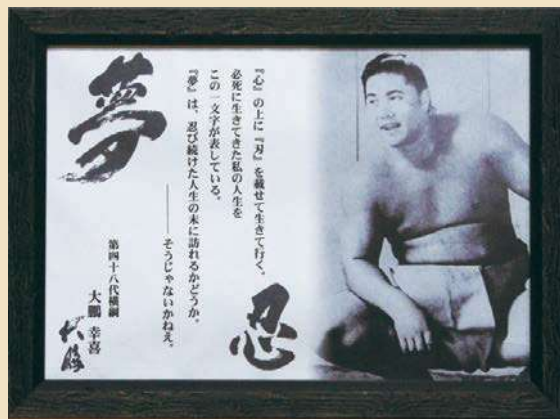 忍
『心』の上に『刃』を載せて生きて行く。
必死に生きてきた私の人生を
この一文字が表している。
『夢』は、忍び続けた人生の末に訪れるかどうか。
――そうじゃないかねえ。
夢
第四十八代横綱
大鵬 幸喜
大鵬